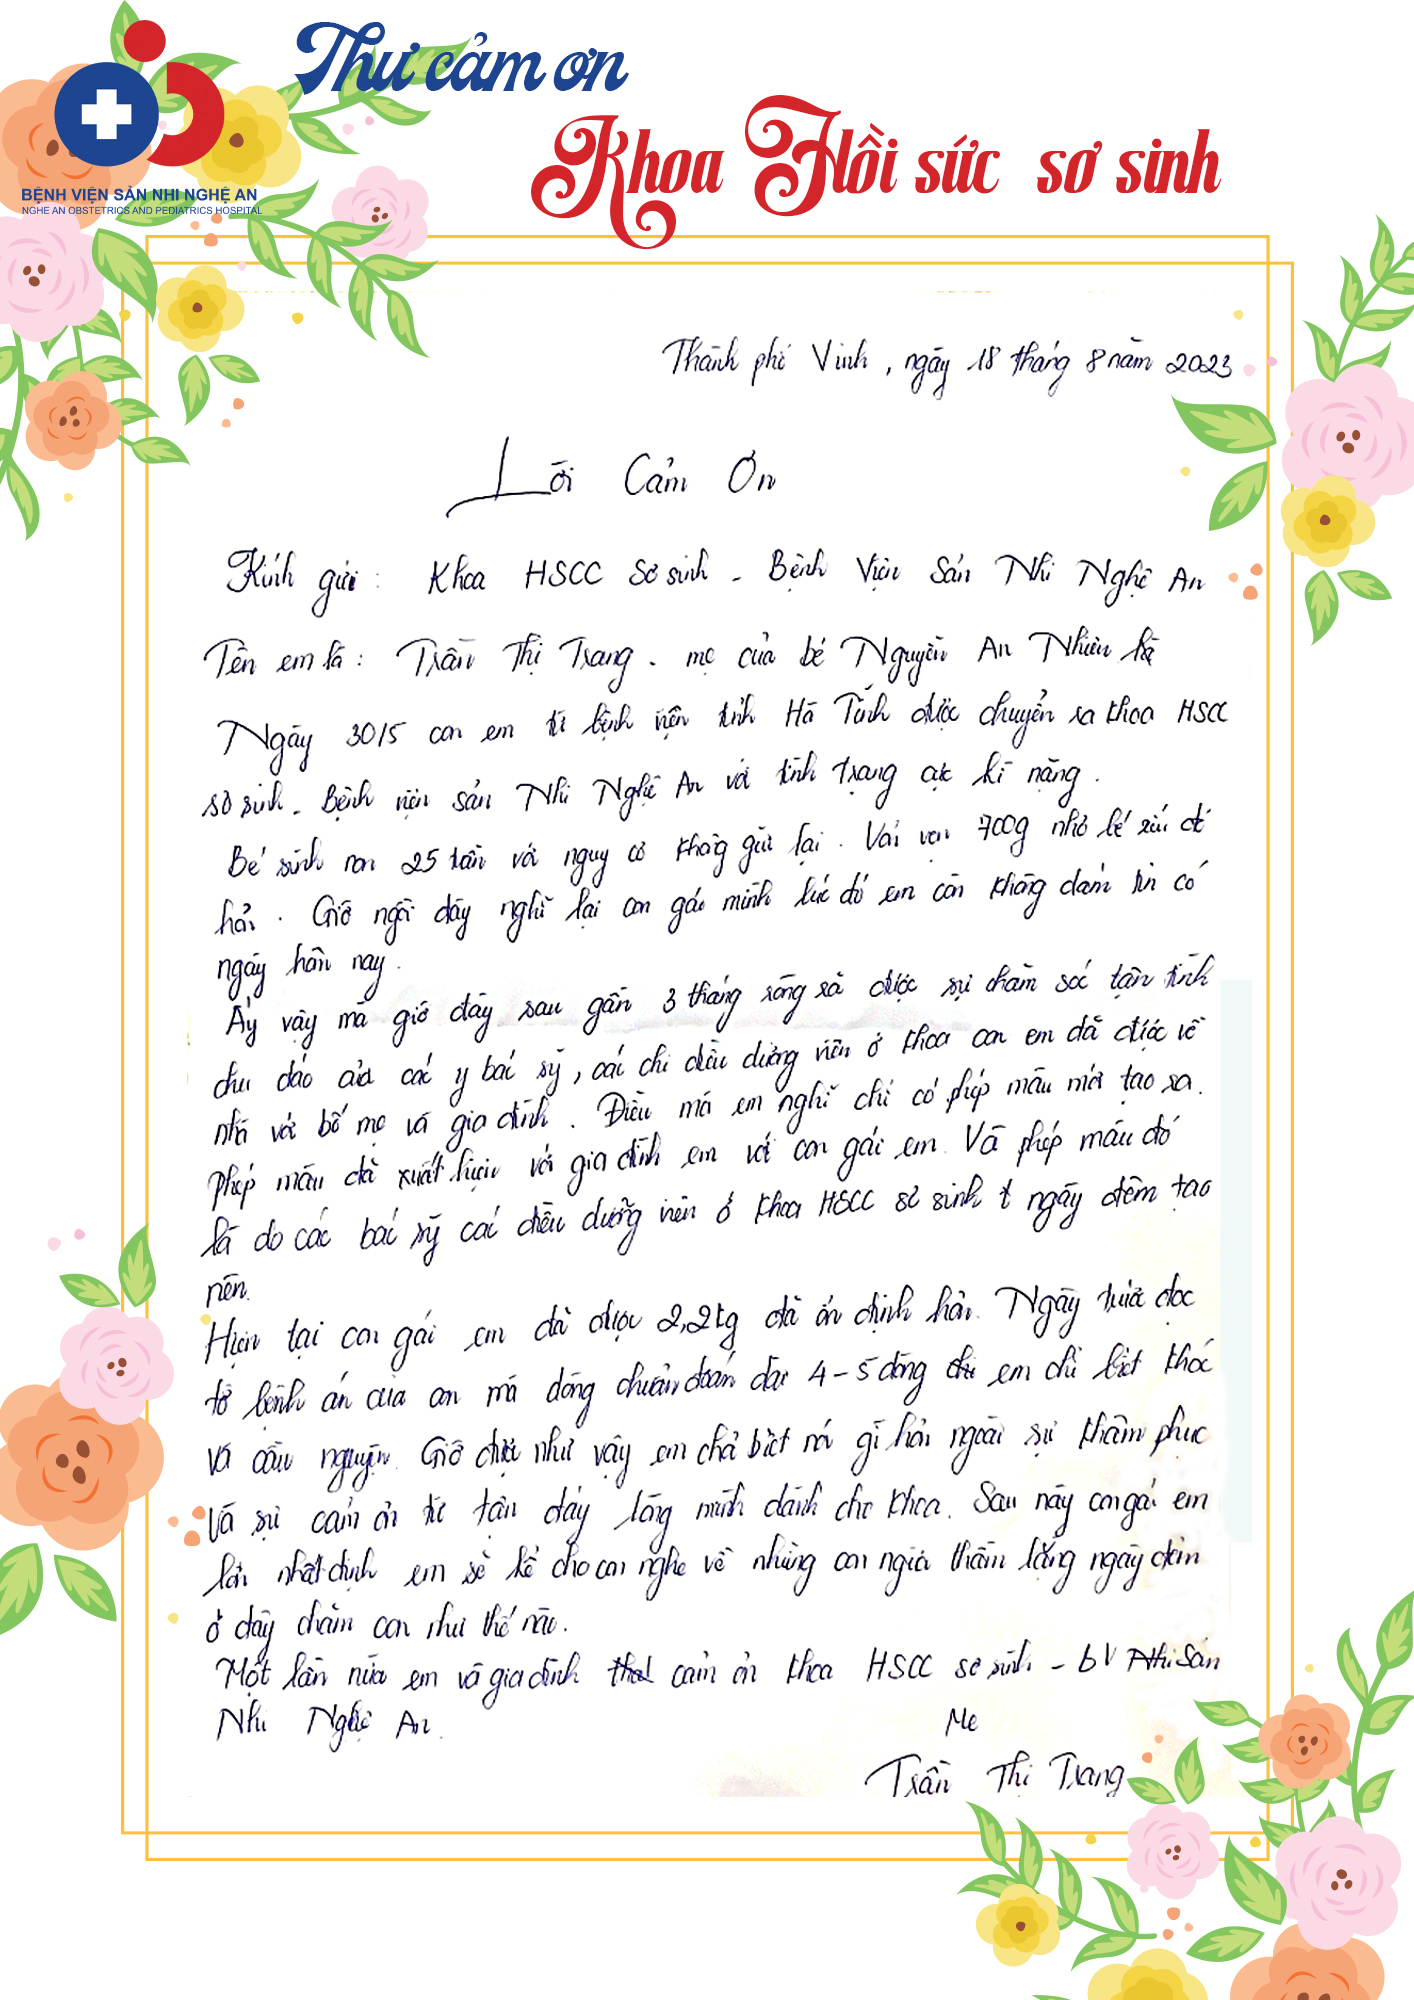 Thư cảm ơn
Khoa Hồi sức sơ sinh
BỆNH VIỆN SẢN NHI NGHỆ AN
NGHE AN OBSTETRICS AND PEDIATRICS HOSPITAL
Thành phố Vinh, ngày 18 tháng 8 năm 2023
Lời Cảm Ơn
Kính gửi: Khoa HSCC Sơ sinh - Bệnh Viện Sản Nhi Nghệ An
Tên em là: Trần Thị Trang - mẹ của bé Nguyễn An Nhiên
Ngày 30/5 con em từ bệnh viện tỉnh Hà Tĩnh được chuyển ra khoa HSCC
sơ sinh - Bệnh viện sản Nhi Nghệ An với tình trạng cực kì nặng.
Bé sinh non 25 tuần với nguy cơ không giữ lại. Vỏn vẹn 700g nhỏ bé xíu đó
hơi. Giờ ngồi đây nghĩ lại con gái mình lúc đó em còn không dám tin có
ngày hôm nay.
Ấy vậy mà giờ đây sau gần 3 tháng ròng rã được sự chăm sóc tận tình
chu đáo của các y bác sỹ, các chị điều dưỡng viên ở khoa con em đã được về
nhà với bố mẹ và gia đình. Điều mà em nghĩ chỉ có phép màu mới tạo ra.
Phép màu đã xuất hiện với gia đình em với con gái em. Và phép màu đó
là do các bác sỹ các điều dưỡng viên ở khoa HSCC sơ sinh ngày đêm tạo
nên.
Hiện tại con gái em đã được 2,2kg đã ổn định hơn. Ngày trước đọc
tờ bệnh án của con mà dòng chuẩn đoán dài 4-5 dòng em chỉ biết khóc
và cầu nguyện. Giờ được như vậy em chả biết nói gì hơn ngoài sự khâm phục
và sự cảm ơn từ tận đáy lòng mình dành cho khoa. Sau này con gái em
lớn nhất định em sẽ kể cho con nghe về những con người thầm lặng ngày đêm
ở đây chăm con như thế nào.
Một lần nữa em và gia đình cảm ơn khoa HSCC sơ sinh - bV Sản
Nhi Nghệ An.
Mẹ
Trần Thị Trang